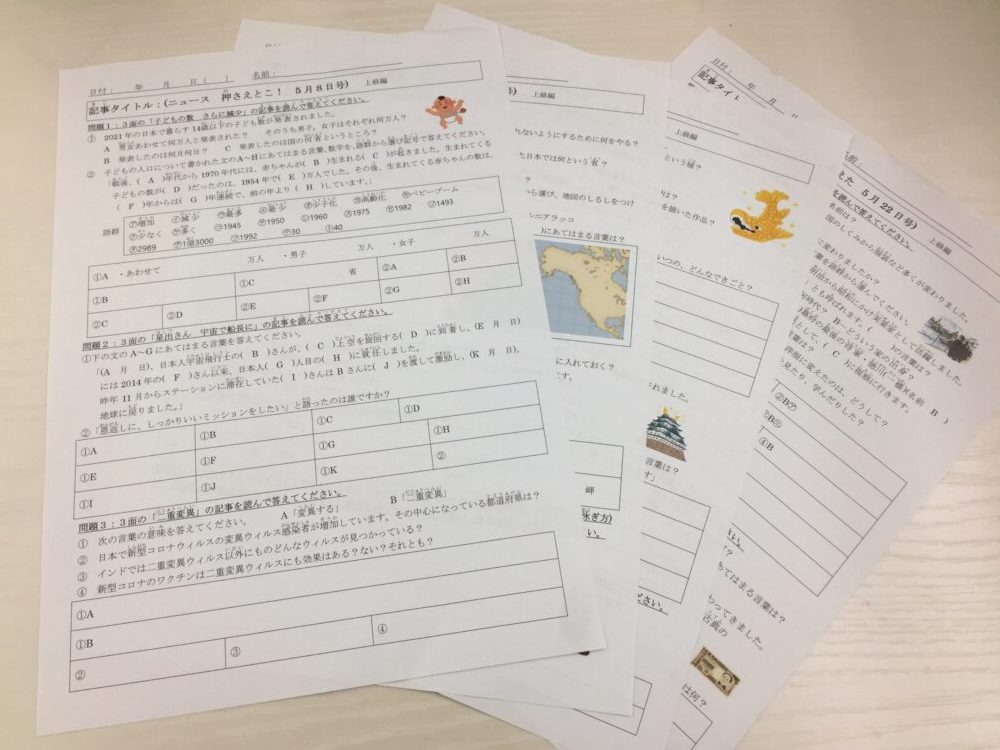 日付： 年 月 日（ ） 名前：
記事タイトル：(ニュース 押さえとこ！ 5月8日号) 上級編
問題1：3面の「子どもの数 さらに減少」の記事を読んで答えてください。
① 2021年の日本で暮らす14歳以下の子ども数が発表されました。
A 男女あわせて何万人と発表された？ そのうち男子、女子はそれぞれ何万人？
B 発表したのは何月何日？ C 発表したのは国の何省というところ？
② 子どもの人口について書かれた文のA～Hにあてはまる言葉、数字を、語群から選び記号で答えてください。
「戦後、( A )年代から1970年代には、赤ちゃんが( B )生まれる( C )が起きました。生まれてくる
子どもの数が( D )だったのは、1954年で( E )万人でした。その後、生まれてくる赤ちゃんの数は、
( F )年からは( G )年連続で、前の年より( H )しています。」
語群
⑦増加 ④減少 ⑨最多 ㊀最少 ㋔少子化 ㋕高齢化 ㋖ベビーブーム
㋗少なく ㋘多く ㋙1945 ㋚1950 ㋛1960 ㋜1975 ㋝1982 ㋞1493
㋟2989 ㋠1億3000 ㋡1992 ㋢30 ㋣40
①A ・あわせて 万人 ・男子 万人 ・女子 万人
①B ①C 省 ②A ②B
②C ②D ②E ②F ②G ②H
問題2：3面の「星出さん 宇宙で船長に」の記事を読んで答えてください。
①下の文のA～Gにあてはまる言葉を答えてください。
「(A 月 日)、日本人宇宙飛行士の( B )さんが、( C )上空を旋回する( D )に到着し、(E 月 日)
には2014年の( F )さん以来、日本人( G )人目の( H )に就任しました。
昨年11月からステーションに滞在していた( I )さんはBさんに( J )を渡して激励し、(K 月 日)、
地球に戻りました。」
②「恩返しに、しっかりいいミッションをしたい」と語ったのは誰ですか？
①A ①B ①C ①D
①E ①F ①G ①H
①I ①J ①K ②
問題3：3面の「二重変異」の記事を読んで答えてください。
① 次の言葉の意味を答えてください。 A「変異する」 B「二重変異」
② 日本で新型コロナウィルスの変異ウィルス感染者が増加しています。その中心になっている都道府県は？
③ インドでは二重変異ウィルス以外にものどんなウィルスが見つかっている？
④ 新型コロナのワクチンは二重変異ウィルスにも効果はある？ない？それとも？
①A
①B
② ③ ④
号) 上級編
れないようにするために何をやる？
た日本では何という省？
から選び、地図のしるしをつけ
ニアラッコ
)にあてはまる言葉は？
に入れておく？
です。
岬
上級編
という城？
を描いた作品？
いつの、どんなできごと？
れました。
言葉は？
す」
い。
ださい。
日付： 年 月
記事タイ
5月22日号) 上級編
を読んで答えてください。
名前は？
国のしくみから服装など多くが変わりました。
に変わりましたか？
葉を語群から選んでください。
とも呼ばれます。(
B どういう家の出身？
に視察に行きます。
②B㋐
④B
い。
？
あてはまる言葉は？
らってきました。
古典の
は何？